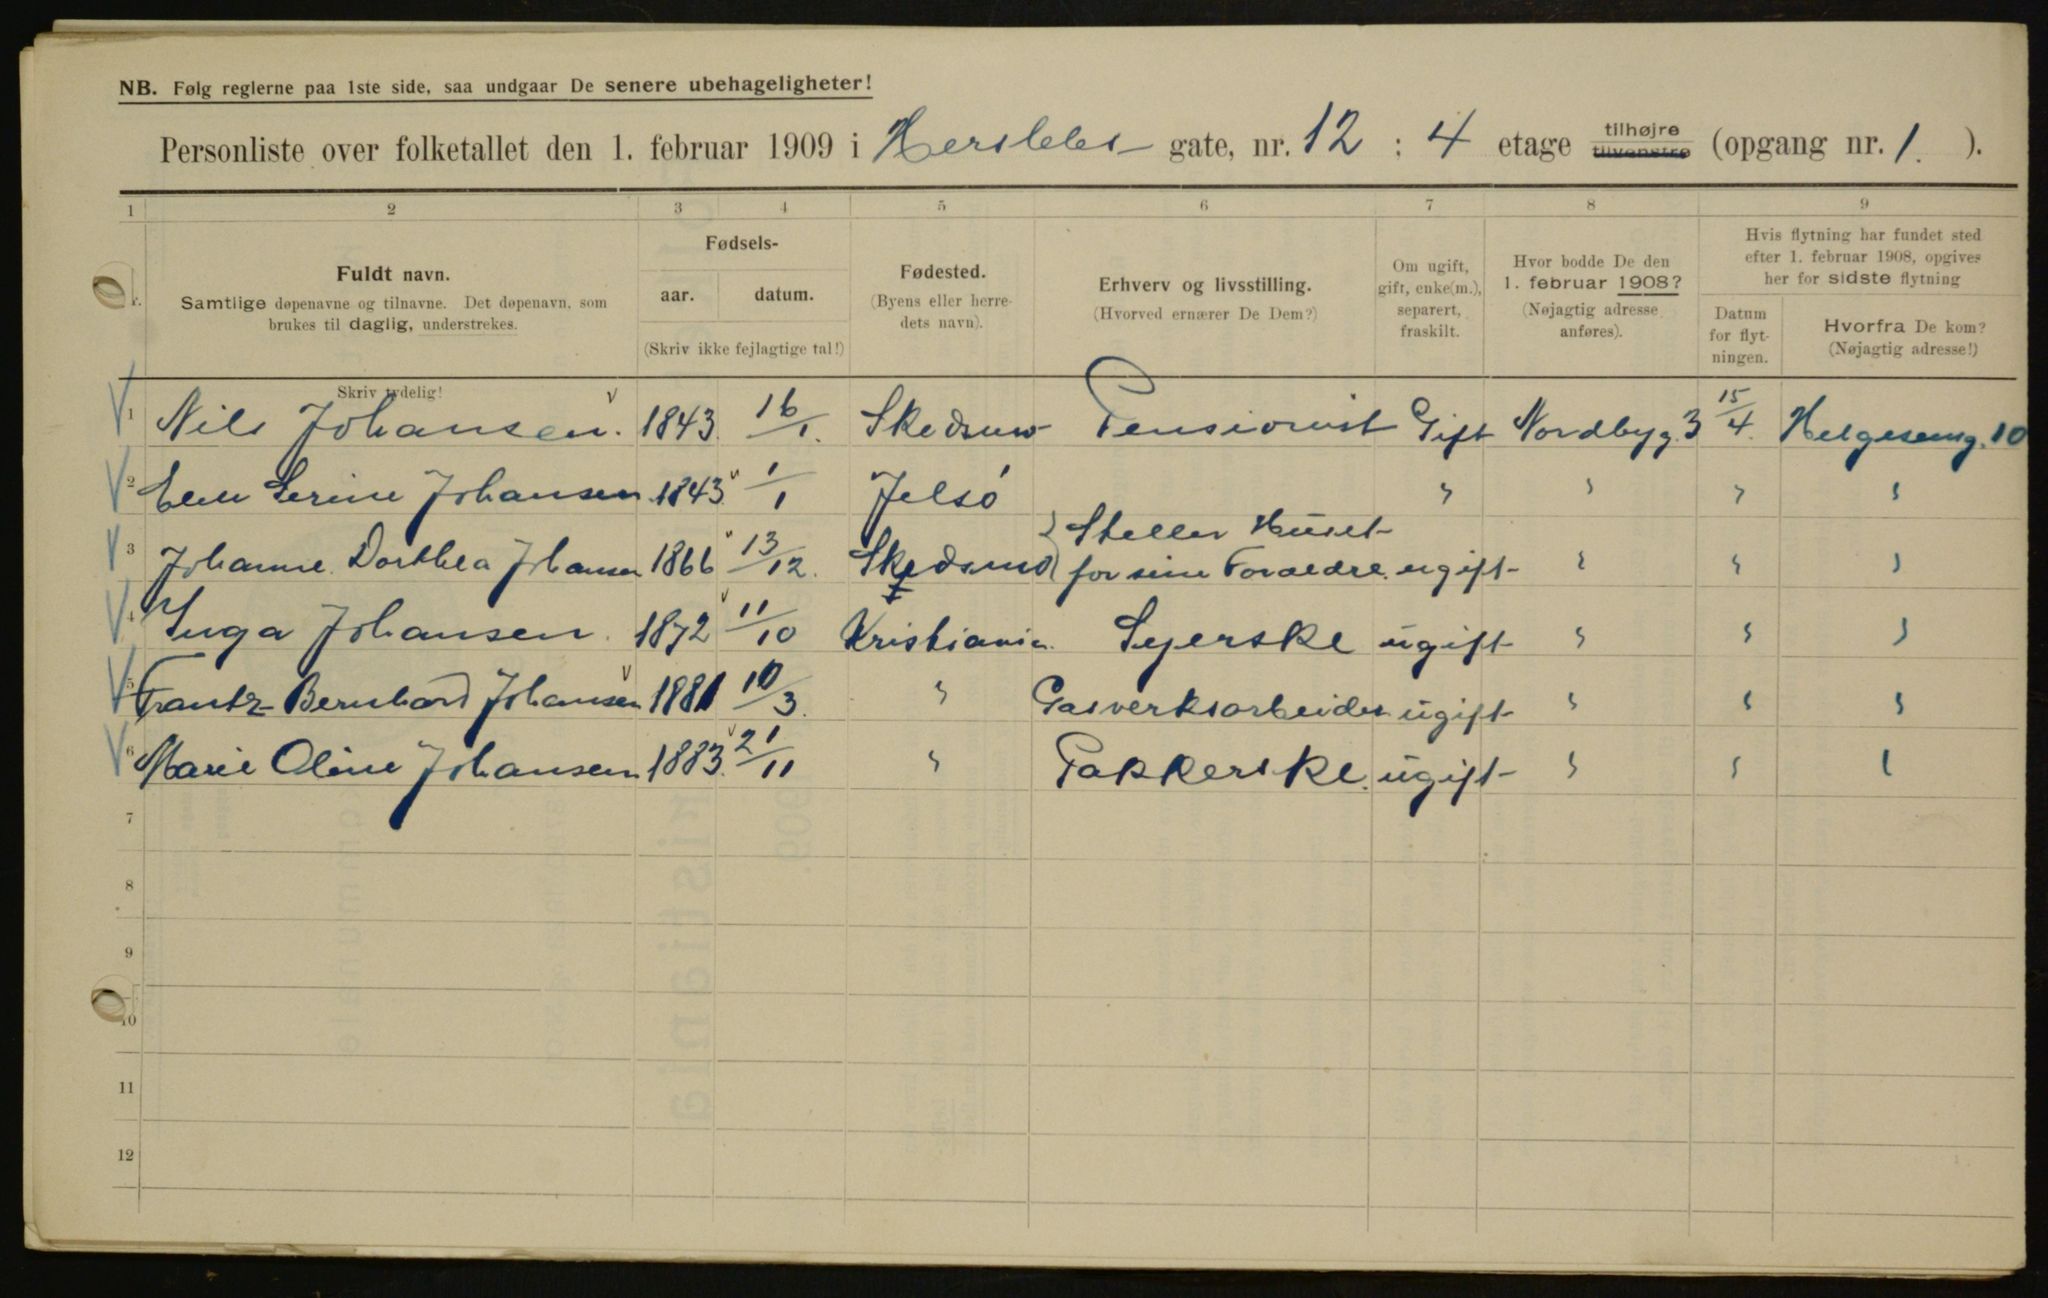 NB. Følg reglerne paa 1ste side, saa undgaar De senere ubehageligheter!
Personliste over folketallet den 1. februar 1909 i Herslebs gate, nr. 12 : 4 etage tilhøjre tilvenstre (opgang nr. 1. ).
1 2 3 4 5 6 7 8 9
Fuldt navn.
Samtlige døpenavne og tilnavne. Det døpenavn, som
brukes til daglig, understrekes.
Fødsels-
aar. datum.
(Skriv ikke fejlagtige tal!)
Fødested.
(Byens eller herre-
dets navn).
Erhverv og livsstilling.
(Hvorved ernærer De Dem?)
Om ugift,
gift, enke(m.),
separert,
fraskilt.
Hvor bodde De den
1. februar 1908?
(Nøjagtig adresse
anføres).
Hvis flytning har fundet sted
efter 1. februar 1908, opgives
her for sidste flytning
Datum
for flyt-
ningen.
Hvorfra De kom?
(Nøjagtig adresse!)
Skriv tydelig!
1 Nils Johansen. 1843. 16/1. Skedsmo Pensionist Gift Nordbyg. 3 15/4. Helgesensg. 10
2 Elen Serine Johansen 1843 1/1 Jelsö " " " "
3 Johanne Dorthea Johansen 1866 13/12. Skedsmo } Steller Huset
for sine Foraeldre. ugift " " "
4 Inga Johansen. 1872 11/10 Kristiania. Syerske ugift " " "
5 Frantz Bernhard Johansen 1881 10/3. " Gasverksarbeider ugift " " "
6 Marie Oline Johansen 1883. 21/11 " Pakkerske. ugift " " "
7
8
9
10
11
12